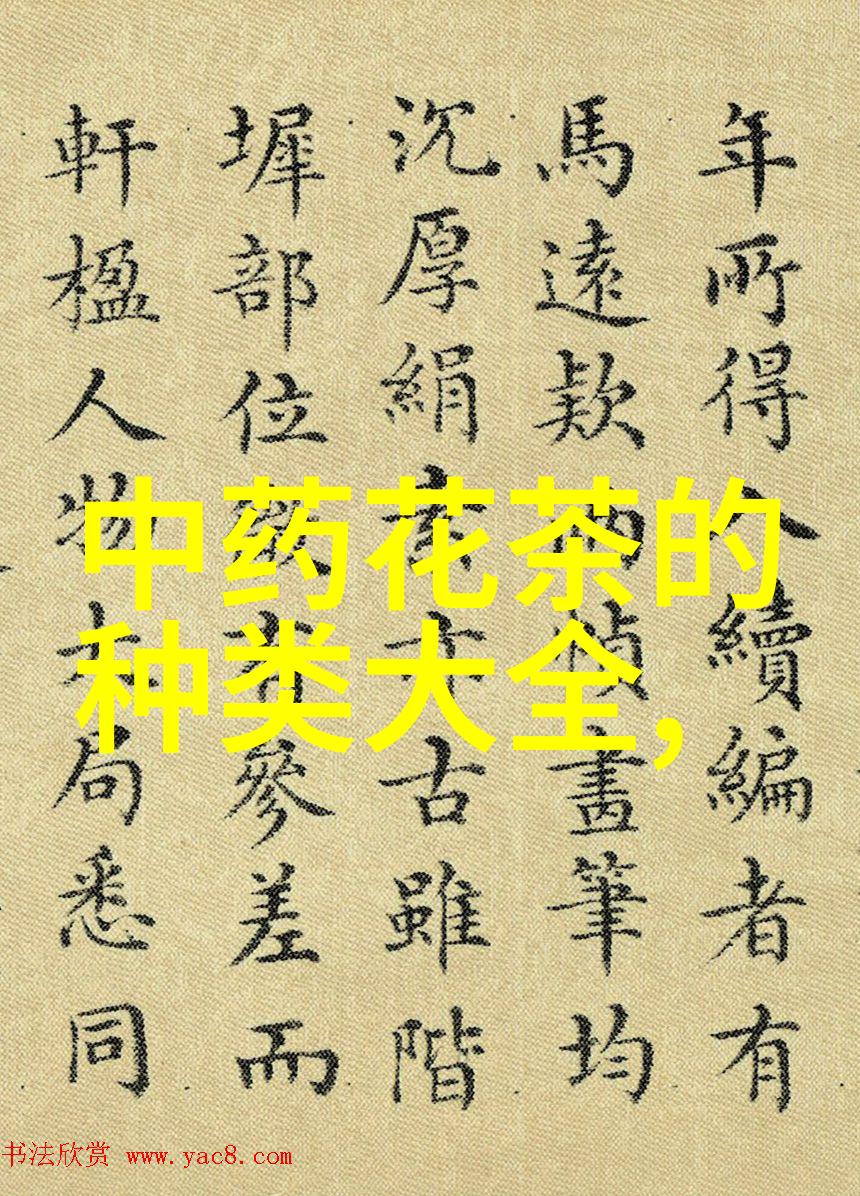 年所得入續編者有
馬遠款兩幀畫筆均
沉厚絹素亦古雖階
墀部位微有參差而
軒楹人物大局悉同
中药花茶的
种类大全,
书法欣赏 www.yac8.com